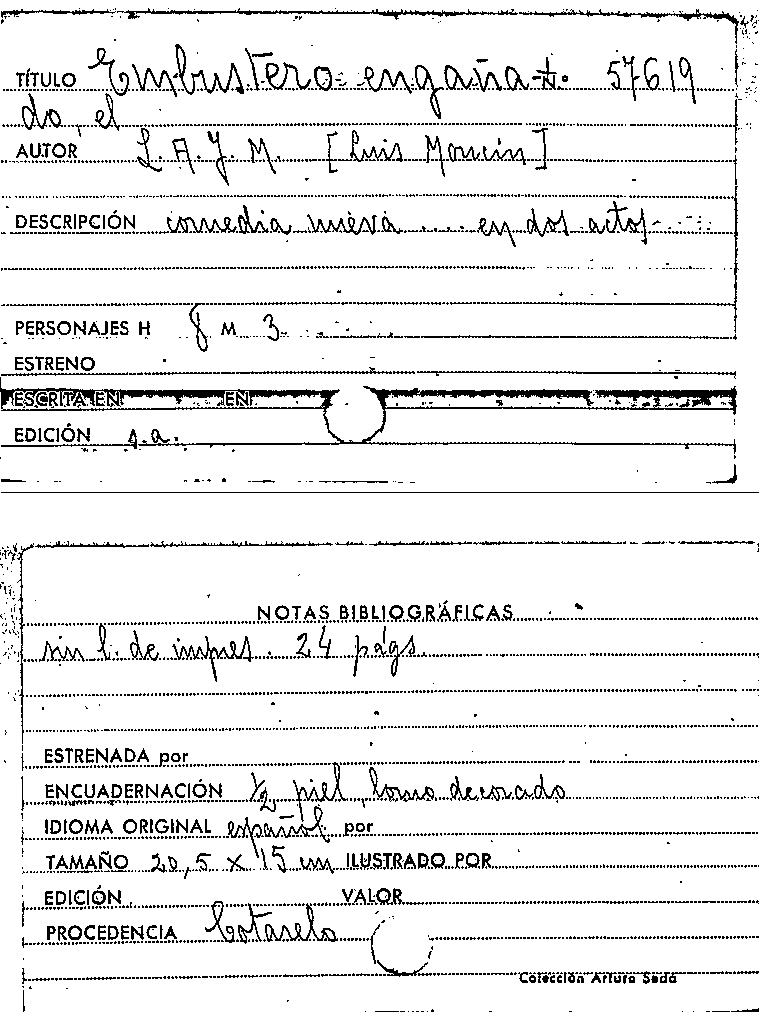 TÍTULO Embustero engaña- t. 57619
do, el
AUTOR L. A. J. M. [Luis Moncín]
DESCRIPCIÓN comedia nueva .... en dos actos
PERSONAJES H 8 M 3
ESTRENO
ESCRITA EN EN
EDICIÓN s.a.
NOTAS BIBLIOGRÁFICAS
sin l. de impres. 24 págs.
ESTRENADA por
ENCUADERNACIÓN ½ piel, lomo decorado
IDIOMA ORIGINAL español por
TAMAÑO 20,5 x 15 cm ILUSTRADO POR
EDICIÓN VALOR
PROCEDENCIA Cotarelo
Colección Arturo Sedó